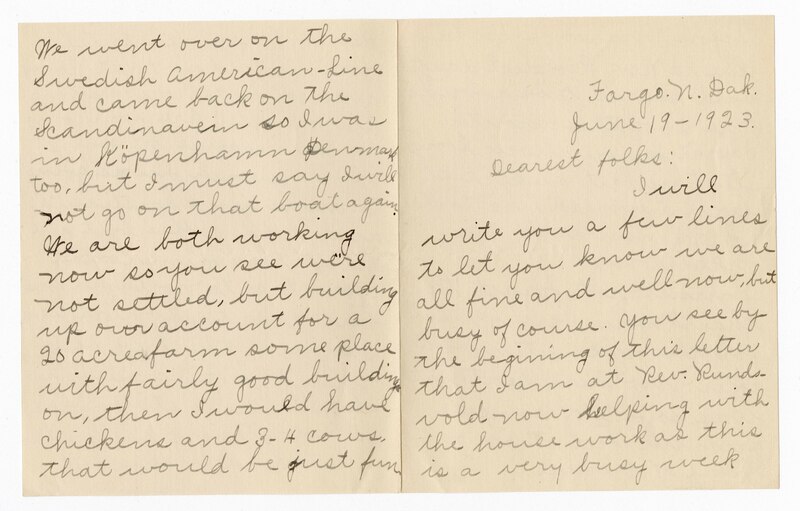 Fargo. N. Dak.
June 19-1923.
Dearest folks:
I will
write you a few lines
to let you know we are
all fine and well now, but
busy of course. You see by
the begining of this letter
that I am at Rev. Runds-
vold now helping with
the house work as this
is a very busy week
We went over on the
Swedish American-Line
and came back on the
Scandinavein so I was
in Köpenhamn Denmark
too, but I must say I will
not go on that boat again.
We are both working
now so you see we're
not settled, but building
up our account for a
20 acreafarm some place
with fairly good buildings
on, then I would have
chickens and 3-4 cows.
that would be just fun